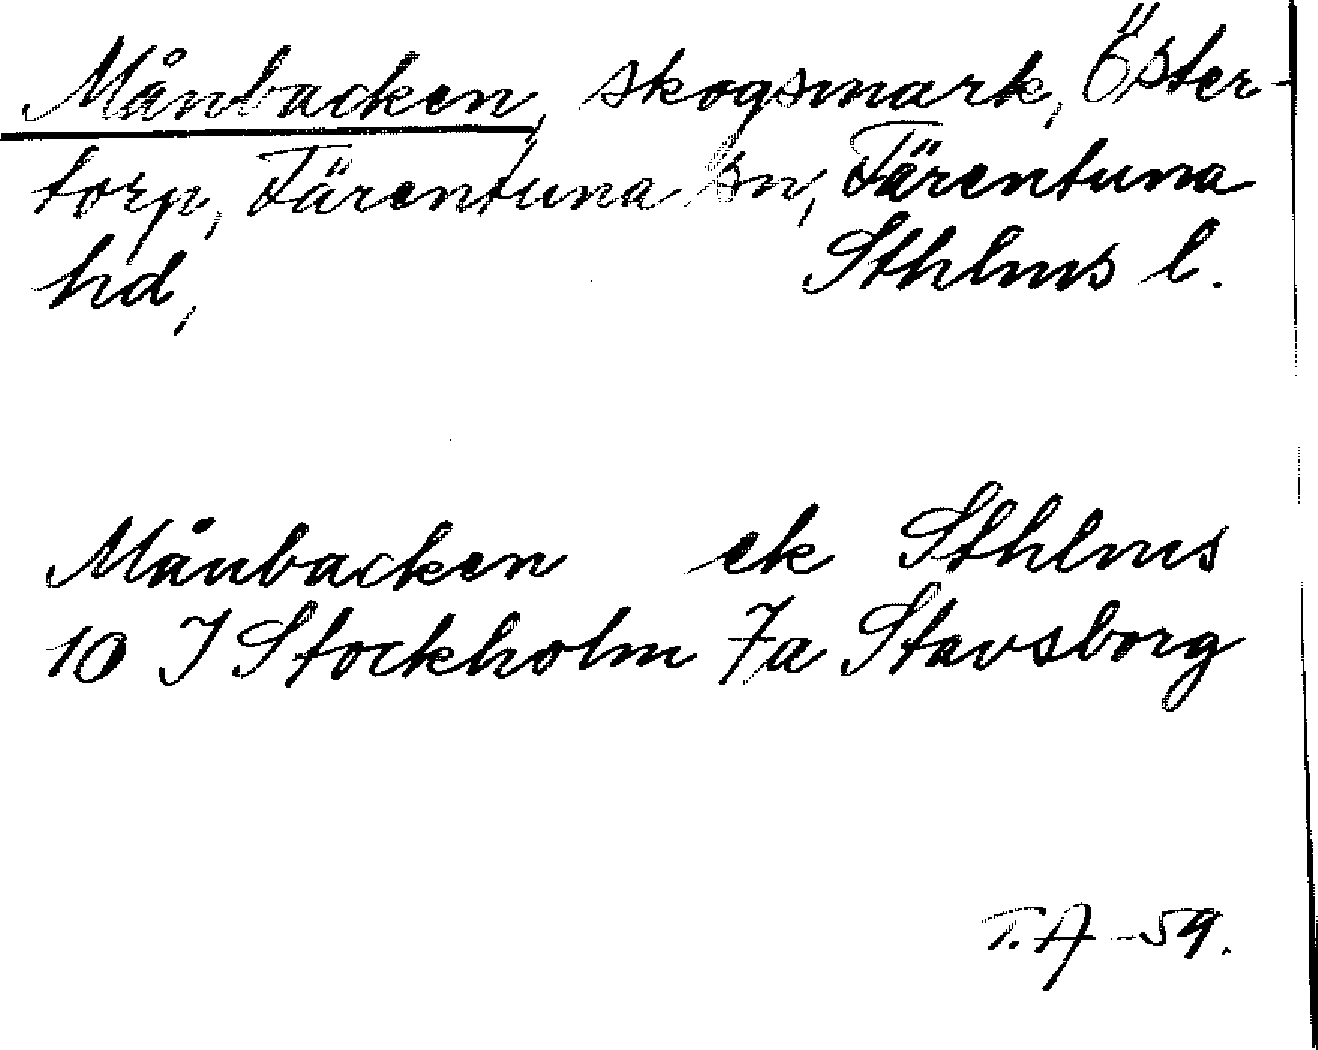 Månbacken, skogsmark, Öster-
torp, Färentuna sn, Färentuna
hd, Sthlms l.
Månbacken ek Sthlms
10 I Stockholm 7a Stavsborg
T.A -59.